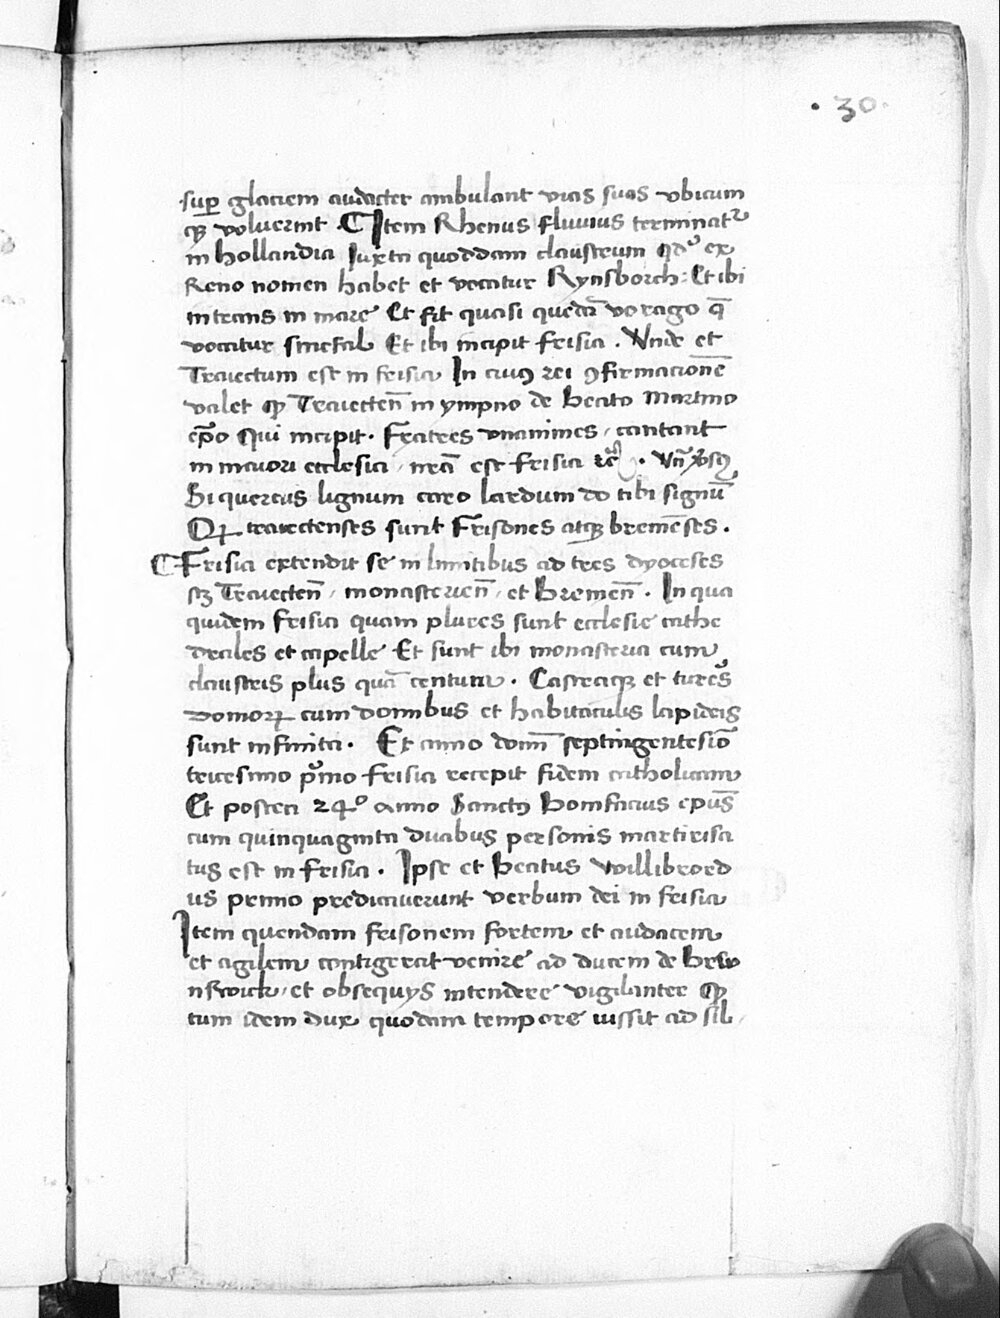 · 30 ·
sup̲ glaciem audacter ambulant vias suas vbicum
qꝫ voluerint · ¶ Item Rhenus fluuius terminatʳ
in hollandia Iuxta quoddam claustrum qdʾ ex
Reno nomen habet et vocatur Rynsborch : Et ibi
intrans in mare Et fit quasi quedā vorago q̄
vocatur sincfal Et ibi incipit frisia . Vnde et
Traiectum est in frisia In cuiꝰ rei ꝯfirmacionē
valet ꝙ Traiecten̄ in ympno de beato Martino
ep̄o Qui incipit · Fratres vnanimes / cantant
in maiori ecclesia / nr̄a est frisia
Si quercus lignum caro lardum do tibi signū
Qꝝ traiectenses sunt Frisones atqꝫ bremēses .
¶ Frisia extendit se in limitibus ad tres dyoceses
sꝫ Traiecten̄ / monasterien̄ / et Bremen̄ . In qua
quidem frisia quam plures sunt ecclesie cathe
drales et capelle Et sunt ibi monasteria cum
claustris plus quā centum . Castraqꝫ et turēs
domoꝝ cum domibus et habitaculis lapideis
sunt infinita . Et anno domī septingentesiō
tricesimo p̄mo frisia recepit fidem catholicam
Et postea 24º anno Sanctꝰ Bonifacius epūs
cum quinquaginta duabus personis martirisa
tus est in frisia . Ipse et Beatus willibrord
us primo predicauerunt verbum dei in frisia
Item quendam frisonem fortem et audacem
et agilem contigerat venire ad ducem de Bru
nswick / et obsequys intendere vigilanter ꝙ
tum idem dux quodam tempore iussit ad sil /